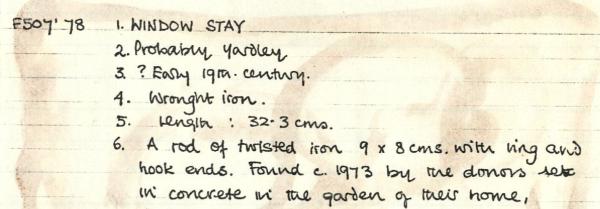 F507'78 1. WINDOW STAY
2. Probably Yardley
3. ? Early 19th. century.
4. Wrought iron.
5. Length : 32.3 cms.
6. A rod of twisted iron 9 x 8 cms. with ring and
hook ends. Found c. 1973 by the donors set
in concrete in the garden of their home,